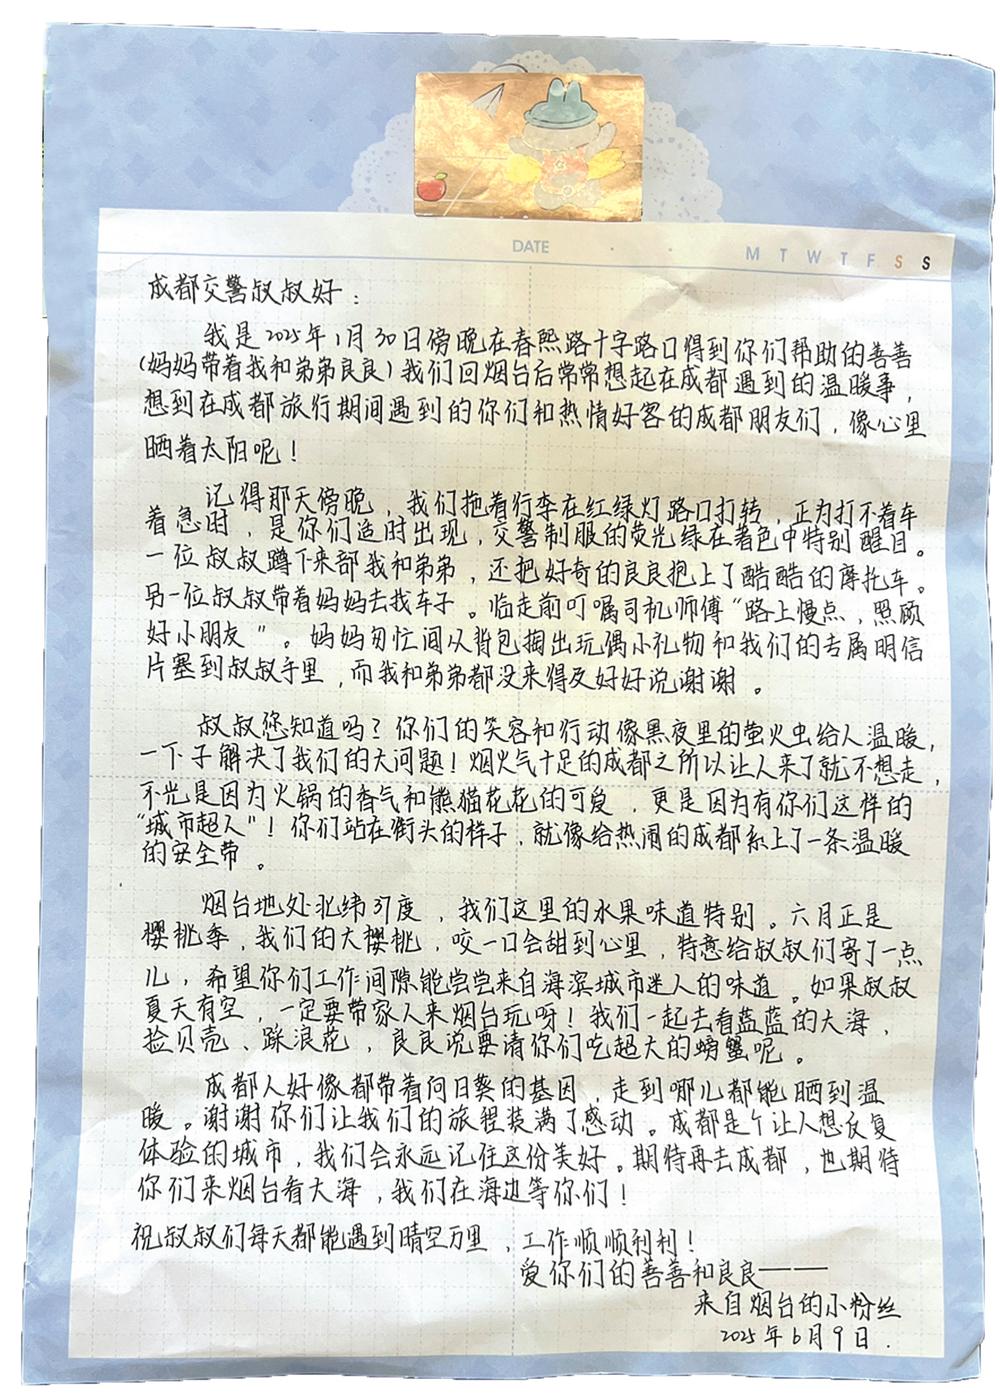 DATE
M T W T F S S
成都交警叔叔好：
我是2025年1月30日傍晚在春熙路十字路口得到你们帮助的善善
(妈妈带着我和弟弟良良)我们回烟台后常常想起在成都遇到的温暖事，
想到在成都旅行期间遇到的你们和热情好客的成都朋友们，像心里
晒着太阳呢！
记得那天傍晚，我们拖着行李在红绿灯路口打转，正为打不着车
着急时，是你们适时出现，交警制服的荧光绿在着色中特别醒目。
一位叔叔蹲下来部我和弟弟，还把好奇的良良抱上了酷酷的摩托车。
另一位叔叔带着妈妈去找车子。临走前叮嘱司机师傅“路上慢点，照顾
好小朋友”。妈妈匆忙间从背包掏出玩偶小礼物和我们的专属明信
片塞到叔叔手里，而我和弟弟都没来得及好好说谢谢。
叔叔您知道吗？你们的笑容和行动像黑夜里的萤火虫给人温暖，
一下子解决了我们的大问题！烟火气十足的成都之所以让人来了就不想走，
不光是因为火锅的香气和熊猫花花的可爱，更是因为有你们这样的
“城市超人”！你们站在街头的样子，就像给热闹的成都系上了一条温暖
的安全带。
烟台地处北纬37度，我们这里的水果味道特别。六月正是
樱桃季，我们的大樱桃，咬一口会甜到心里，特意给叔叔们寄了一点
儿，希望你们工作间隙能尝尝来自海滨城市迷人的味道。如果叔叔
夏天有空，一定要带家人来烟台玩呀！我们一起去看蓝蓝的大海，
捡贝壳、踩浪花，良良说要请你们吃超大的螃蟹呢。
成都人好像都带着向日葵的基因，走到哪儿都能晒到温
暖。谢谢你们让我们的旅程装满了感动。成都是个让人想反复
体验的城市，我们会永远记住这份美好。期待再去成都，也期待
你们来烟台看大海，我们在海边等你们！
祝叔叔们每天都能遇到晴空万里，工作顺顺利利！
爱你们的善善和良良——
来自烟台的小粉丝
2025年6月9日.